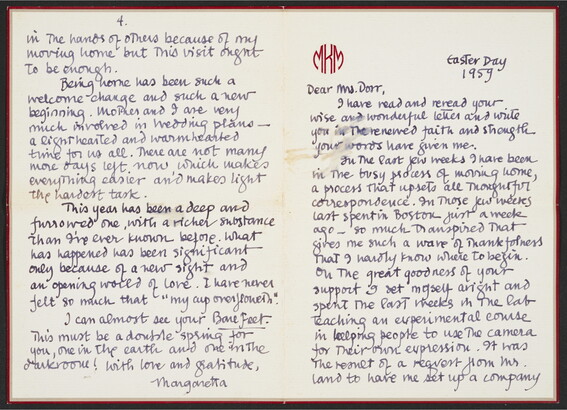 4.
in the hands of others because of my
moving home but this visit ought
to be enough.
Being home has been such a
welcome change and such a new
beginning. Mother and I are very
much involved in wedding plans —
a lighthearted and warmhearted
time for us all. There are not many
more days left now which makes
everything easier and makes light
the hardest task.
This year has been a deep and
furrowed one, with a richer substance
than I've ever known before. What
has happened has been significant
only because of a new sight and
an opening world of love. I have never
felt so much that "my cup overfloweth".
I can almost see your Bare Feet.
This must be a double spring for
you, one in the earth and one in the
darkroom! With love and gratitude,
Margaretta
MKM
Easter Day
1959
Dear Mrs. Dorr,
I have read and reread your
wise and wonderful letter and write
you in the renewed faith and strength
your words have given me.
In the last few weeks I have been
in the busy process of moving home,
a process that upsets all thoughtful
correspondence. In those few weeks
last spent in Boston just a week
ago — so much transpired that
gives me such a wave of thankfulness
that I hardly know where to begin.
On the great goodness of your
support I set myself aright and
spent the last weeks in the Lab
teaching an experimental course
in helping people to use the camera
for their own expression. It was
the result of a request from Mr.
Land to have me set up a company